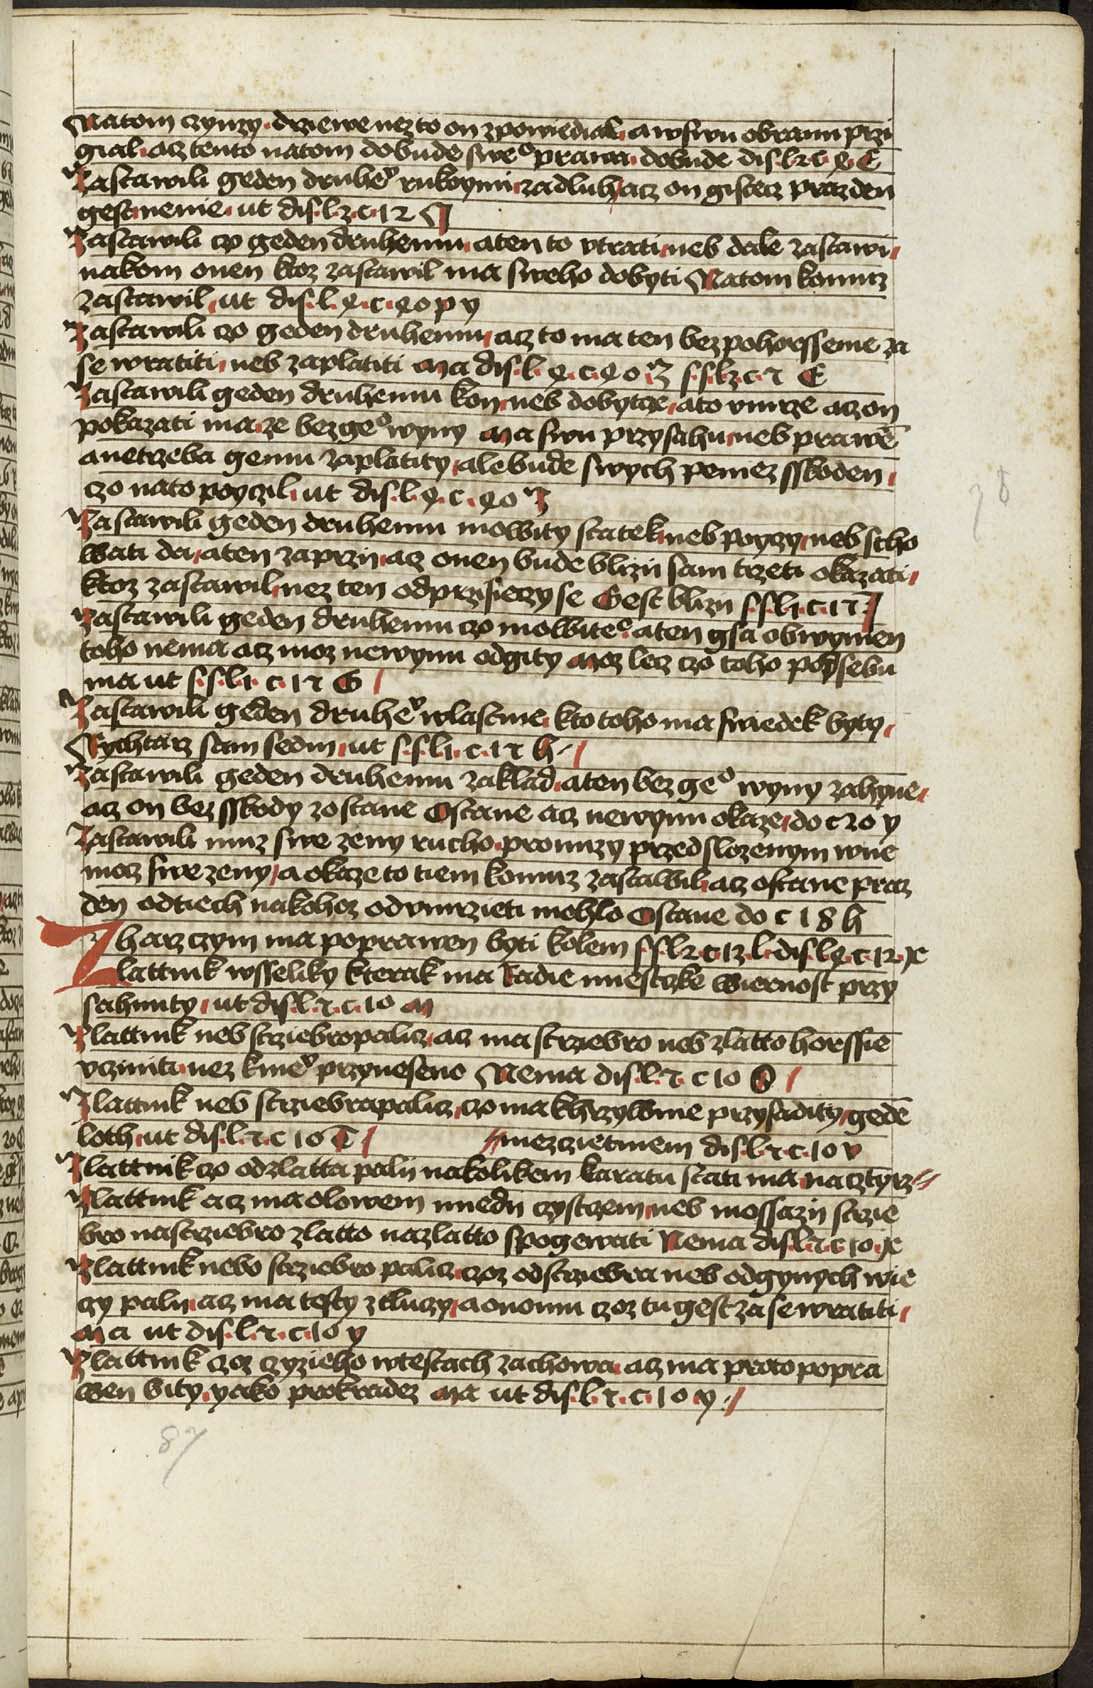 Natom czynzy drziewe nez to on zpowiedial a w swu obranu przi
gial acz tento natom dobude swe° prawa dobude dis. l. 2. c. 4. E
Zastawili geden druhe° rukoymi za dluh acz on gistecz prazden
gest nenie ut dis. l. 2. c. 12
Zastawili czo geden druhemu a ten to vtrati neb dale zastawi
nakom onen ktoz zastawil ma sweho dobyti Natom komuz
zastawil ut dis. l. 4. c. 40 p y
Zastawili czo geden druhemu acz to ma ten bez pohorssenie za
se wratiti neb zaplatiti Ma dis. l. 4. c. 40
Zastawili geden druhemu kon neb dobytcze a to vmrze acz on
pokazati ma ze bez ge° wyny Ma swu przysahu neb prawē
a netrzeba gemu zaplatity ale bude swych peniez sskoden
czo nato poyczil ut dis. l. 4. c. 40
Zastawili geden druhemu mowity statek neb poyczy neb scho
wati da a ten zaprzij acz onen bude blizij sam trzeti okazati
ktoz zastawil nez ten odprzisieczy se Gest blizij s. s. l. 1. c. 17
Zastawili geden druhemu czo mowite° a ten gsa obwynien
toho nema acz moz newynu odgity Moz lecz czo toho po sebu
ma ut s. s. l. 1. c. 17 G
Zastawili geden druhe° wlastnie kto toho ma swiedek byty
Rychtarz sam sedm ut s. s. l. 1. c. 17 h
Zastawili geden druhemu zaklad a ten bez ge° wyny zahyne
acz on bez sskody zostane Ostane acz newynu okaze do c 20 y
Zastawili muz swe zeny rucho pro nuzy przed slozenym wie
moz swe zeny a okaze to tiem komuz zastawil acz ostane praz
den od tiech nakohoz od vmrzieti mohlo Ostane do c 18 h
Zharz czym ma poprawen byti kolem s. s. l. 2. c. 13. l. dis. l. 4. c. 12. x
Zlattnik wsseliky kterak ma Radie miestske wiernost przy
sahnuty ut dis. l. 7. c. 10 m
Zlattnik neb strziebropalicz acz ma strziebro neb zlatto horssie
vcziniti nez k nie° przyneseno Nema dis. l. 7. c 10 O
Zlattnik neb strziebrapalicz czo ma k hrzywnie przysadity gedē
loth ut dis. l. 7. c 10 T // mezczietmem dis. l. 7. c. 10 v
Zlattnik czo od zlatta palij nakolikem karatu stati ma na cztyrz //
Zlattnik acz ma olowem miedij czystczem neb mossazij strzie
bro na strziebro zlatto na zlatto spogewati Nema dis. l. 7. c. 10. x
Zlattnik nebo strziebropalicz czoz od strziebra neb od gynych wie
czy palij acz ma testy ztluczy a onomu czoz tu gest zase wratiti
Ma ut dis. l. 7. c. 10 y
Zlattnik czoz czyzieho w testach zachowa acz ma proto popra
wen bity yako prokradez Ma ut dis. l. 7. c. 10 y
87